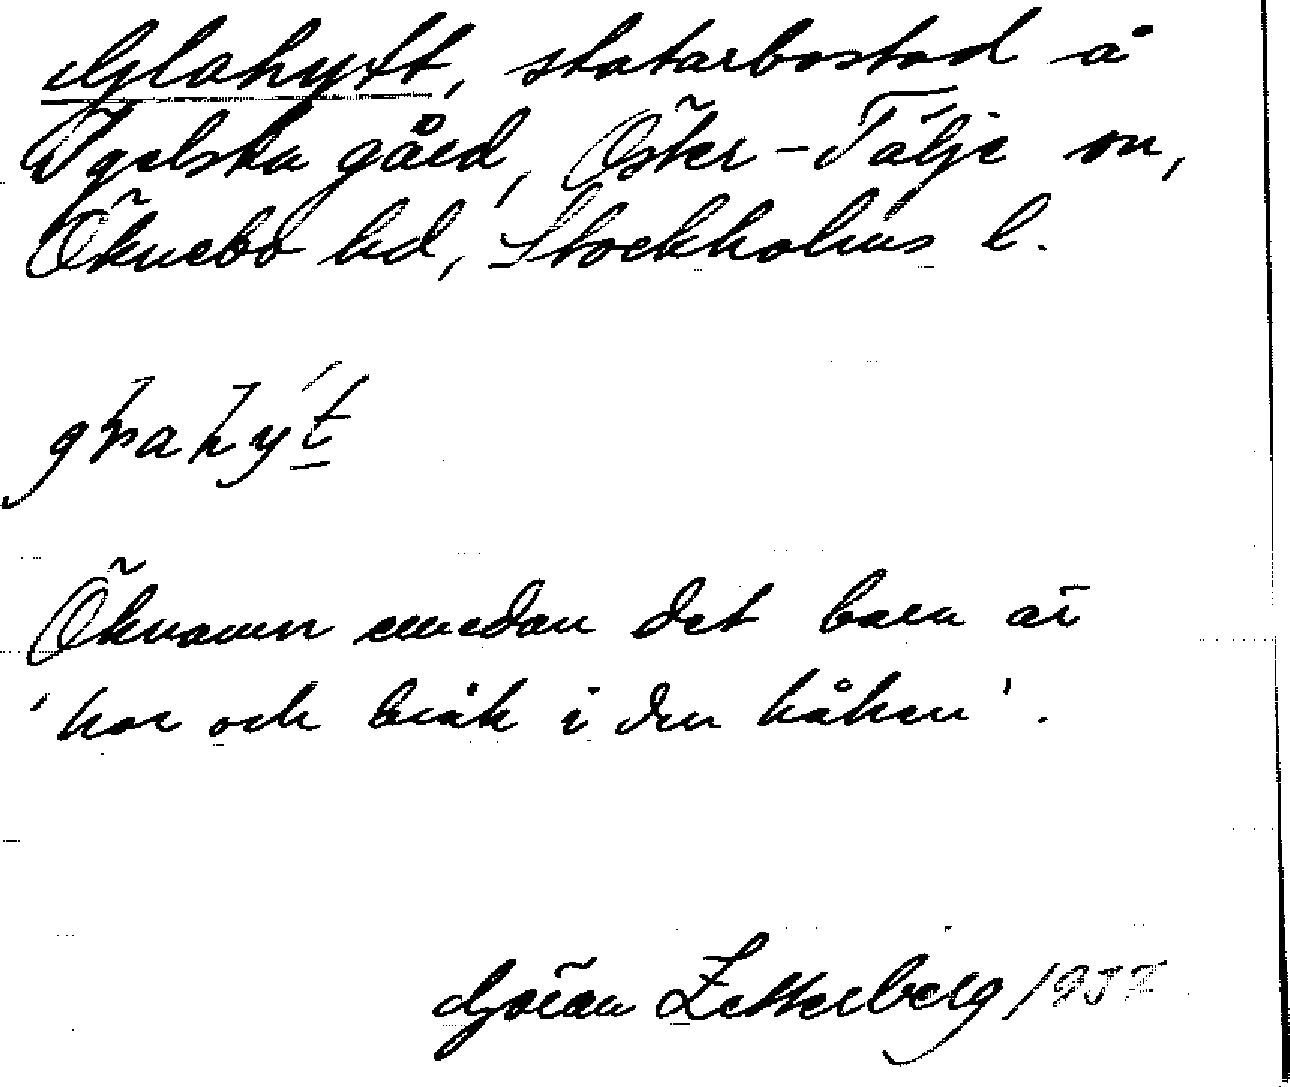 Glahytt, statarbostad å
Igelsta gård, Öster-Tälje sn,
Öknebo hd, Stockholms l.
Öknamn emedan det bara är
'hor och bråk i den kåken'.
Göran Zetterberg 1937